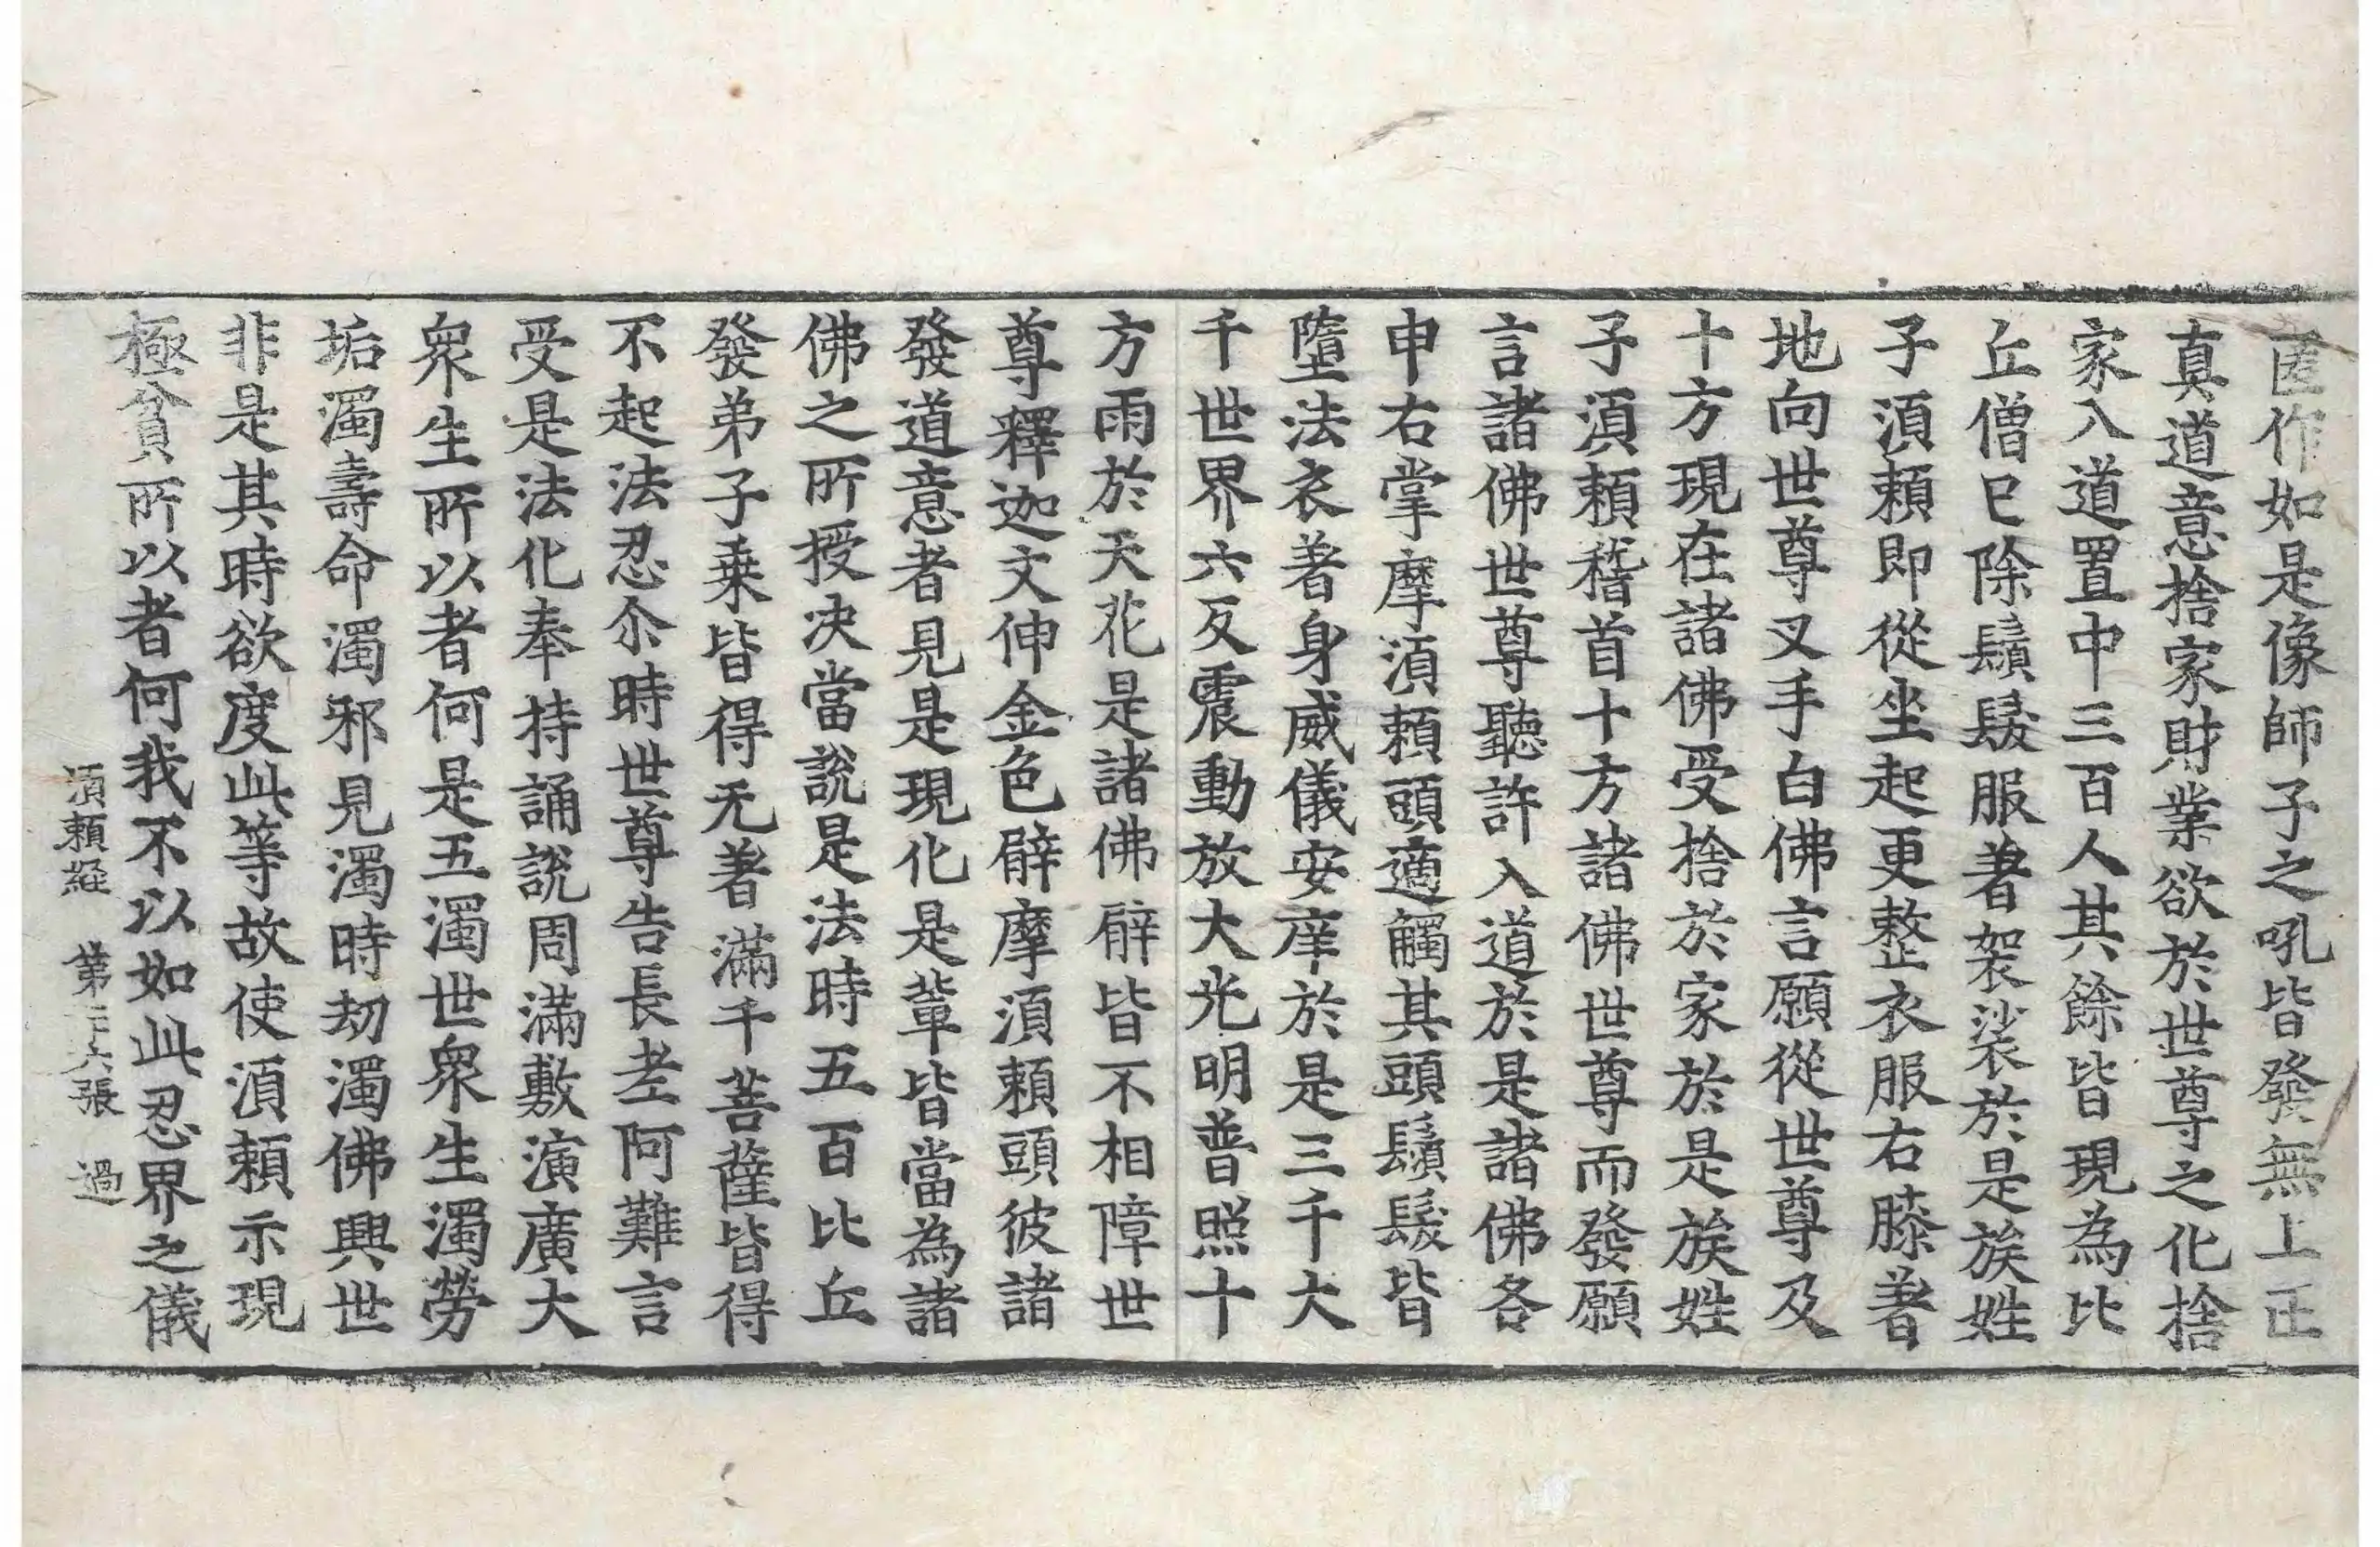 匿作如是像師子之吼皆發無上正
真道意捨家財業欲於世尊之化捨
家入道置中三百人其餘皆現為比
丘僧已除鬚髮服著袈裟於是族姓
子湏頼即從坐起更整衣服右膝著
地向世尊叉手白佛言願從世尊及
十方現在諸佛受捨於家於是族姓
子湏頼稽首十方諸佛世尊而發願
言諸佛世尊聽許入道於是諸佛各
申右掌摩湏頼頭適觸其頭鬚髮皆
墮法衣著身威儀安庠於是三千大
千世界六反震動放大光明普照十
方雨於天花是諸佛臂皆不相障世
尊釋迦文伸金色臂摩湏頼頭彼諸
發道意者見是現化是輩皆當為諸
佛之所授决當說是法時五百比丘
發弟子乗皆得无著滿千菩薩皆得
不起法忍尒時世尊告長老阿難言
受是法化奉持誦說周滿敷演廣大
眾生所以者何是五濁世眾生濁勞
垢濁壽命濁邪見濁時劫濁佛興世
非是其時欲度此等故使湏頼示現
極貧所以者何我不以如此忍界之儀
湏頼経 第二十六張 過